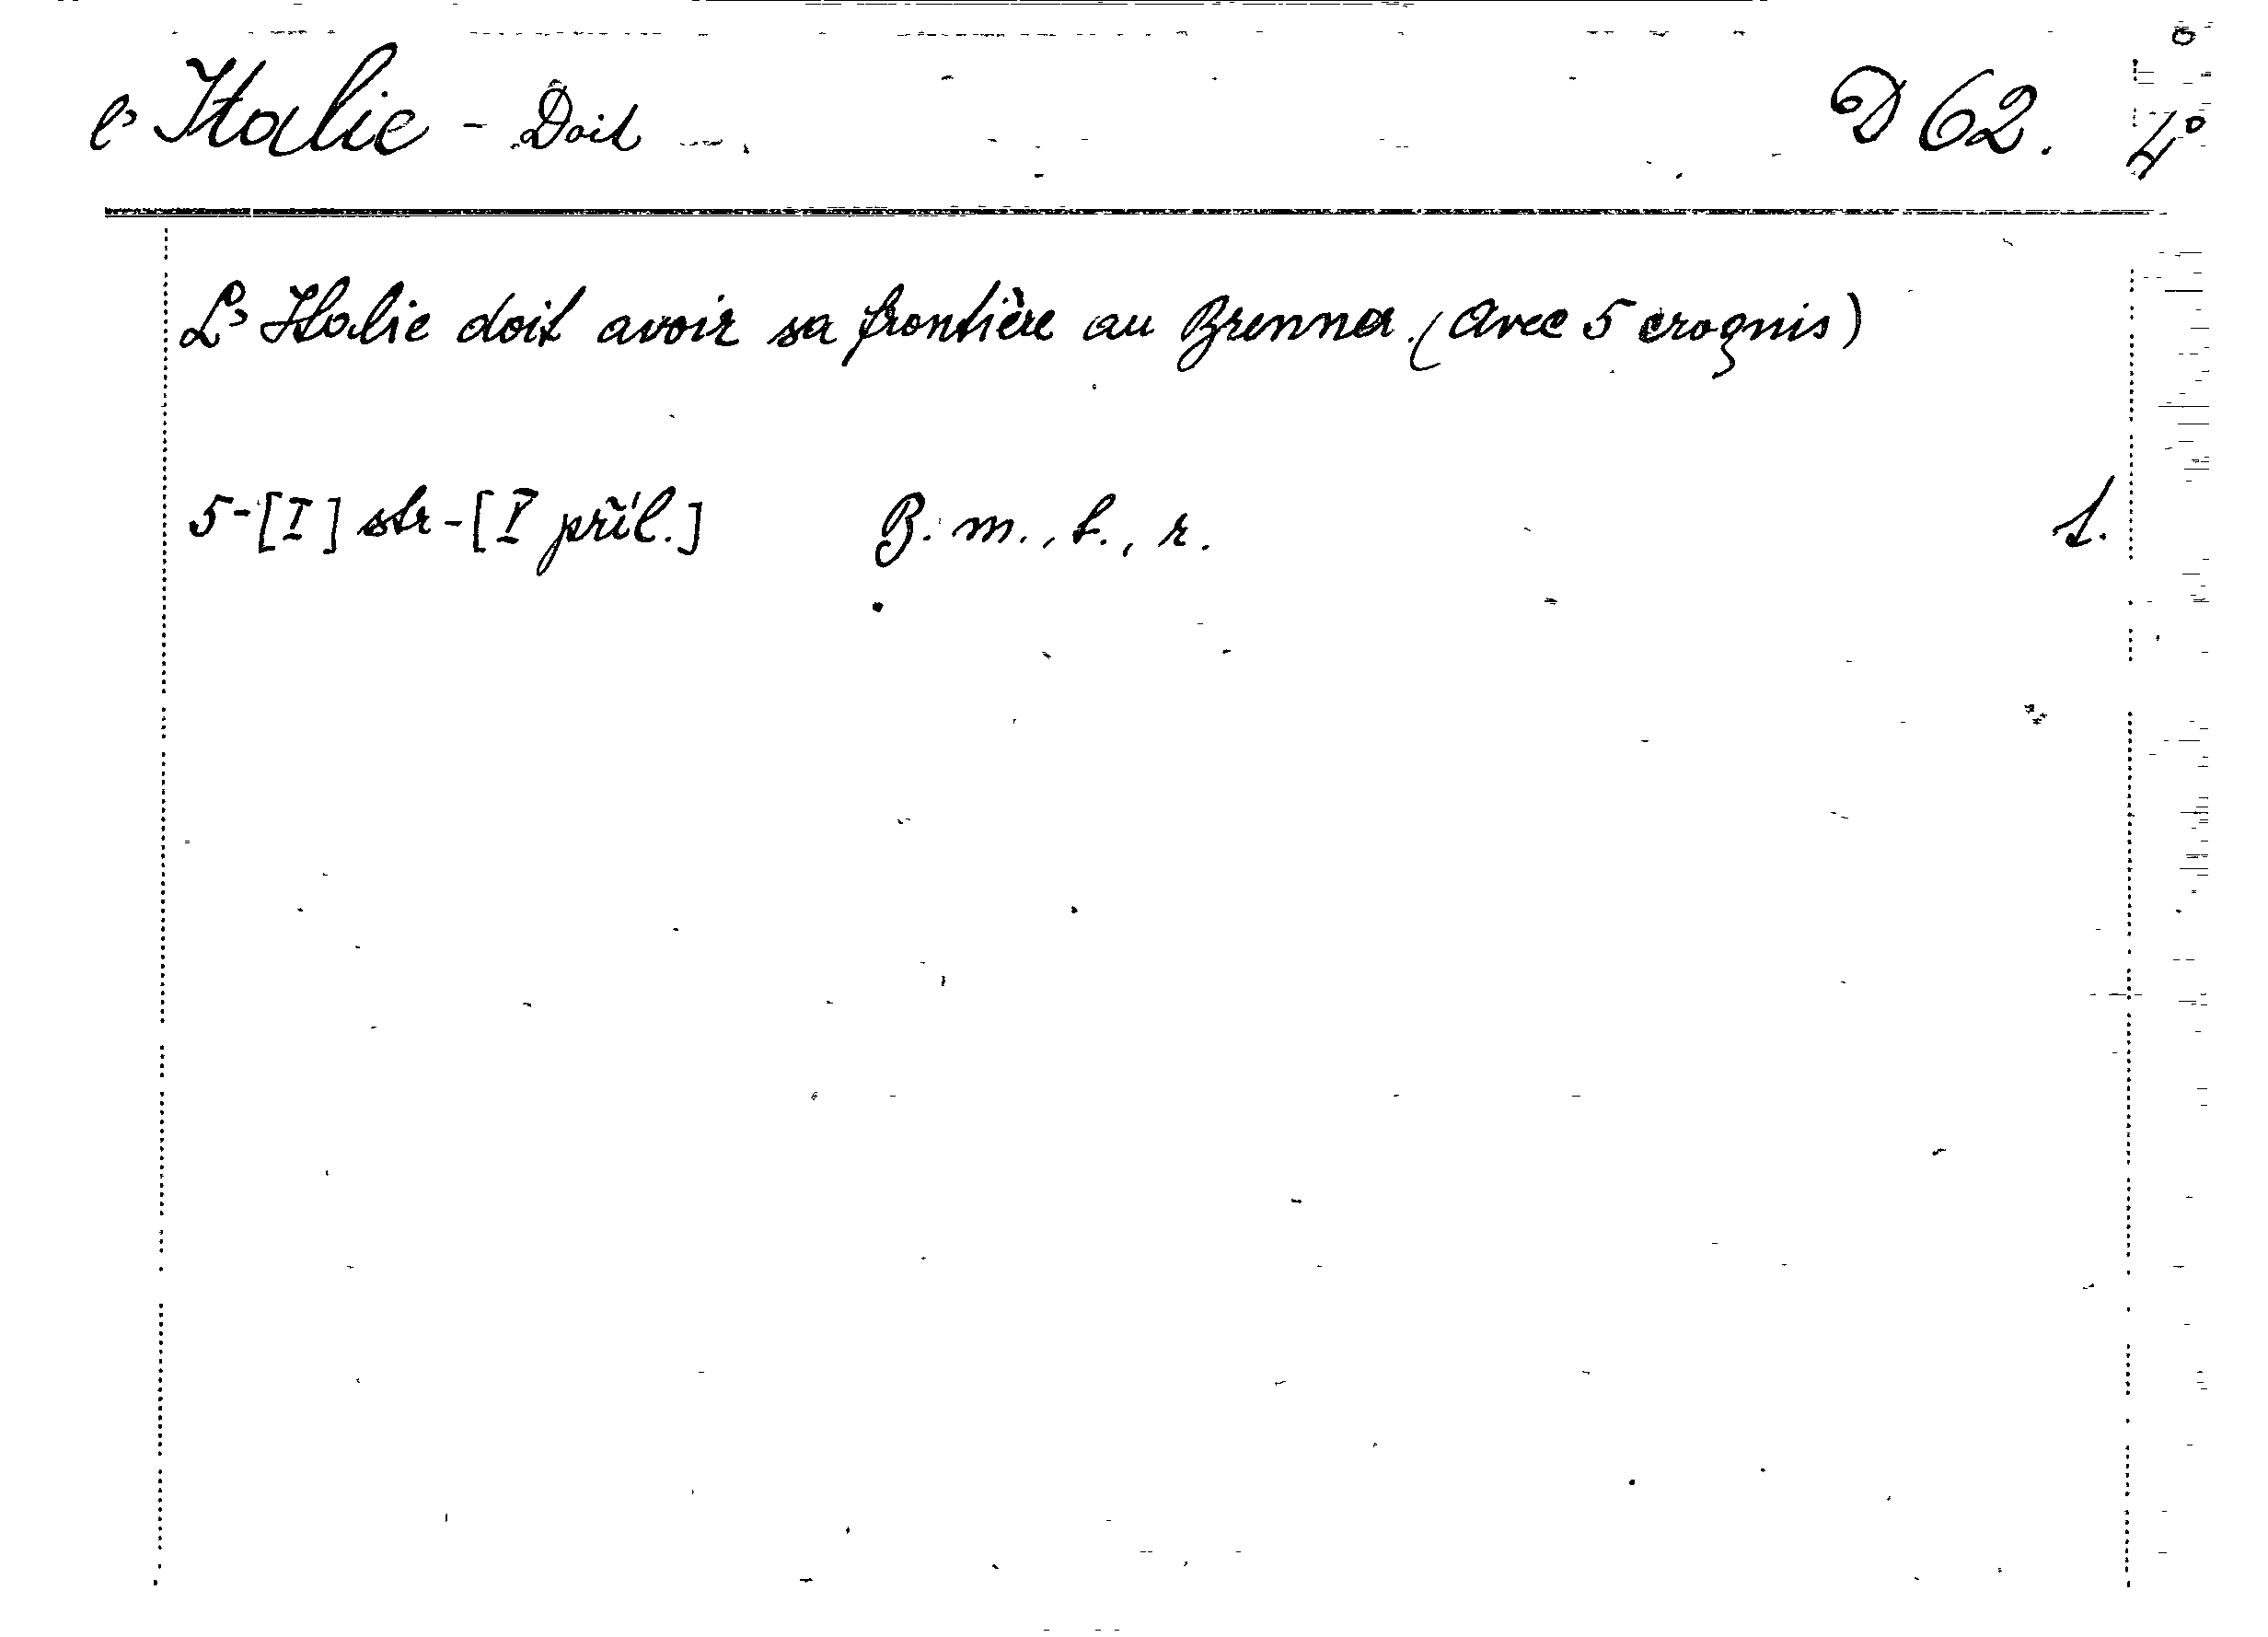 l'Italie - Doit D 62. 4°
L'Italie doit avoir sa frontière au Brenner. (Avec 5 croquis)
5-[I] str-[I příl.] B. m., t., r. 1.